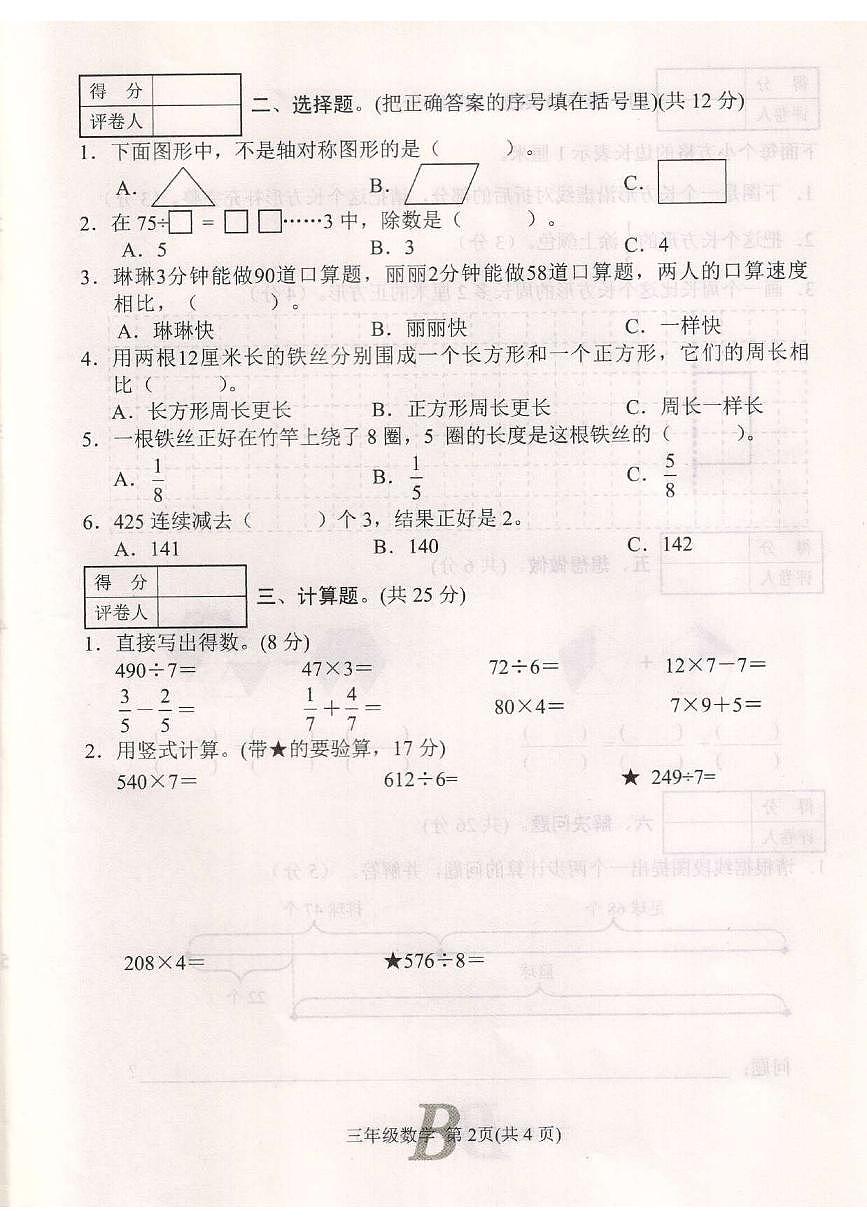 得 分
评卷人
二、选择题。(把正确答案的序号填在括号里)(共 12 分)
1. 下面图形中，不是轴对称图形的是（ ）。
A. B. C.
2. 在 75÷□ = □ □……3 中，除数是（ ）。
A. 5 B. 3 C. 4
3. 琳琳3分钟能做90道口算题，丽丽2分钟能做58道口算题，两人的口算速度
相比，（ ）。
A. 琳琳快 B. 丽丽快 C. 一样快
4. 用两根12厘米长的铁丝分别围成一个长方形和一个正方形，它们的周长相
比（ ）。
A. 长方形周长更长 B. 正方形周长更长 C. 周长一样长
5. 一根铁丝正好在竹竿上绕了 8 圈，5 圈的长度是这根铁丝的（ ）。
A. 1/8 B. 1/5 C. 5/8
6. 425 连续减去（ ）个 3，结果正好是 2。
A. 141 B. 140 C. 142
得 分
评卷人
三、计算题。(共 25 分)
1. 直接写出得数。(8 分)
490÷7= 47×3= 72÷6= 12×7-7=
3/5-2/5= 1/7+4/7= 80×4= 7×9+5=
2. 用竖式计算。(带★的要验算，17 分)
540×7= 612÷6= ★ 249÷7=
208×4= ★576÷8=
三年级数学 第 2页(共 4 页)
B